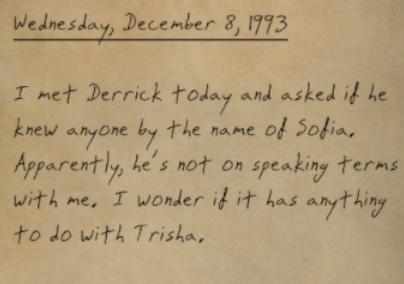 Wednesday, December 8, 1993
I met Derrick today and asked if he
knew anyone by the name of Sofia.
Apparently, he's not on speaking terms
with me. I wonder if it has anything
to do with Trisha.